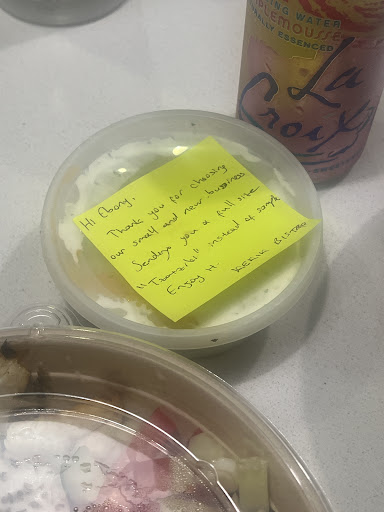 LING WATER
LEMOUSSE
ALLY ESSENCED
La
Croix
Hi Ebony,
Thank you for choosing
our small and new bussiness
Sendings you a full size
"Tzatziki" instead of sample
Enjoy it.
KEKIK BISTRO